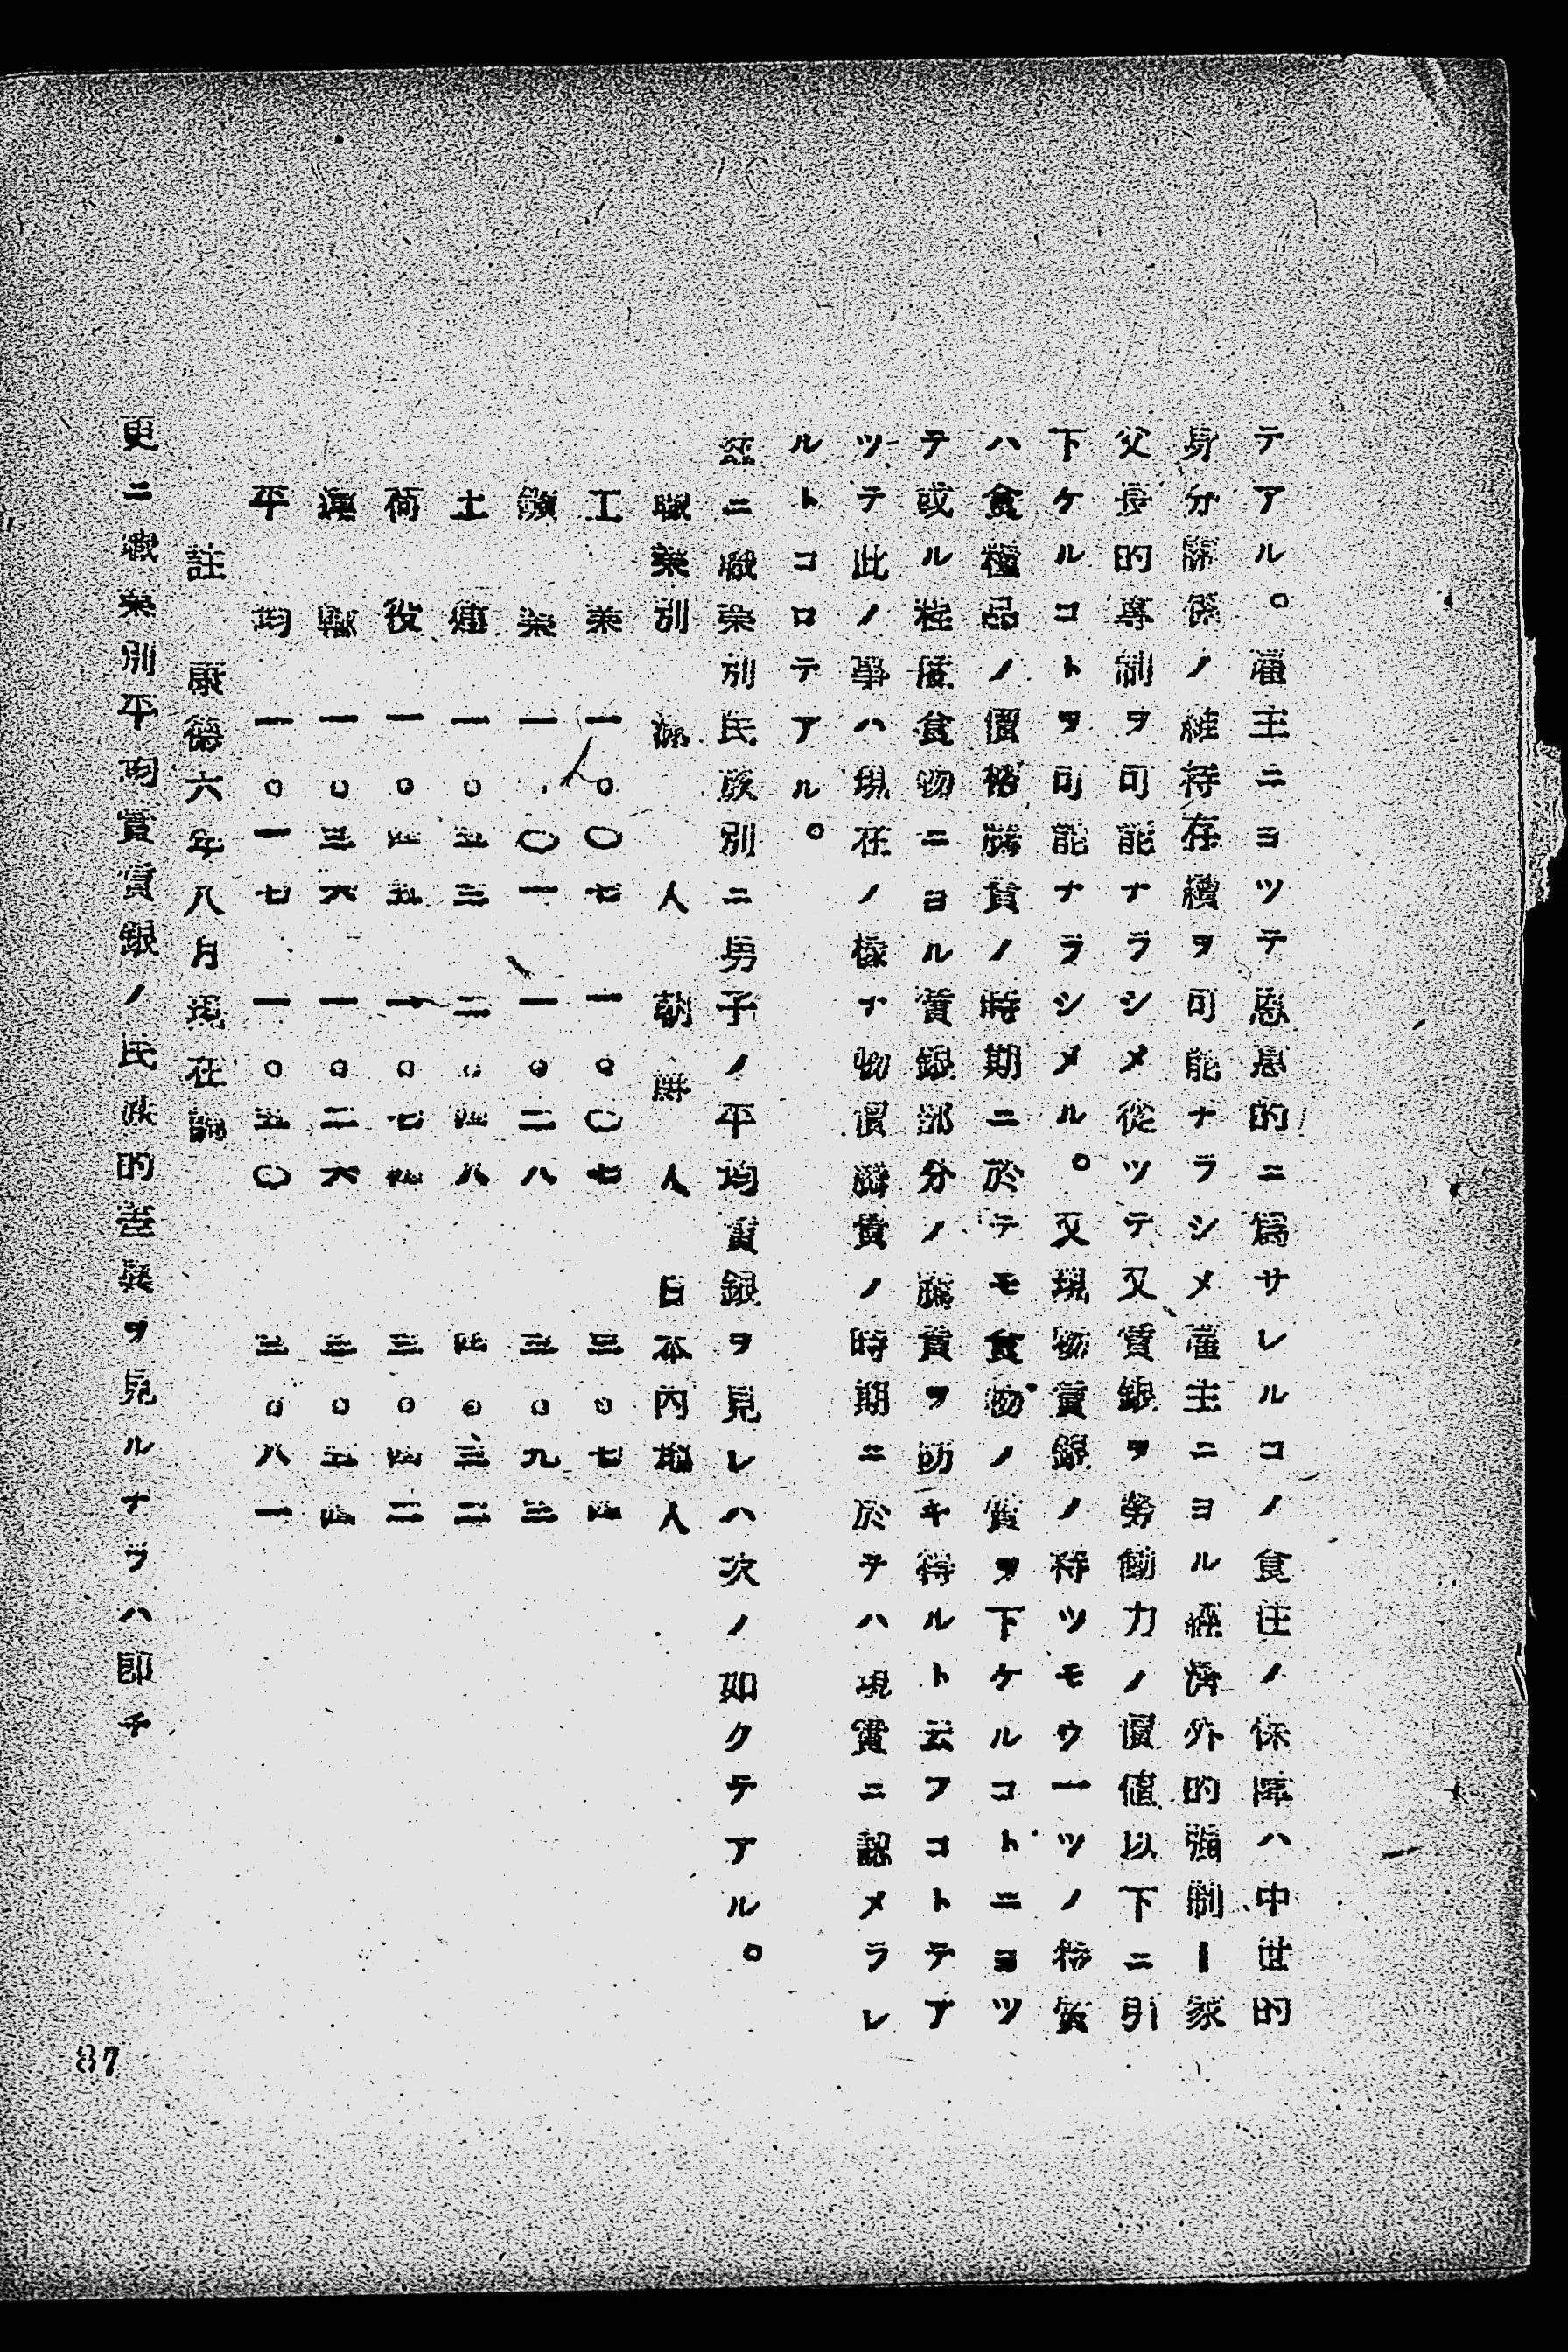 テアル。雇主ニヨツテ恩恵的ニ爲サレルコノ食住ノ保障ハ中世的
身分關係ノ維持存續ヲ可能ナラシメ雇主ニヨル經濟外的強制ー家
父長的專制ヲ可能ナラシメ從ツテ又賃銀ヲ勞働力ノ價値以下ニ引
下ケルコトヲ可能ナラシメル。又現物賃銀ノ持ツモウ一ツノ特質
ハ食糧品ノ價格騰貴ノ時期ニ於テモ食物ノ質ヲ下ケルコトニヨツ
テ或ル程度食物ニヨル賃銀部分ノ騰貴ヲ防キ得ルト云フコトテア
ツテ此ノ事ハ現在ノ樣ナ物價騰貴ノ時期ニ於テハ現實ニ認メラレ
ルトコロテアル。
茲ニ職業別民族別ニ男子ノ平均賃銀ヲ見レハ次ノ如クテアル。
職業別 滿人 朝鮮人 日本內地人
工業 一。〇七 一。〇七 三。七四
鑛業 一。〇一 一。二八 三。九三
土建 一。五三 二。四八 四。三二
荷役 一。四五 一。七四 三。四二
運輸 一。三六 一。二六 三。五四
平均 一。一七 一。五〇 三。八一
註 康德六年八月現在調
更ニ職業別平均實賃銀ノ民族的差異ヲ見ルナラハ即チ
87